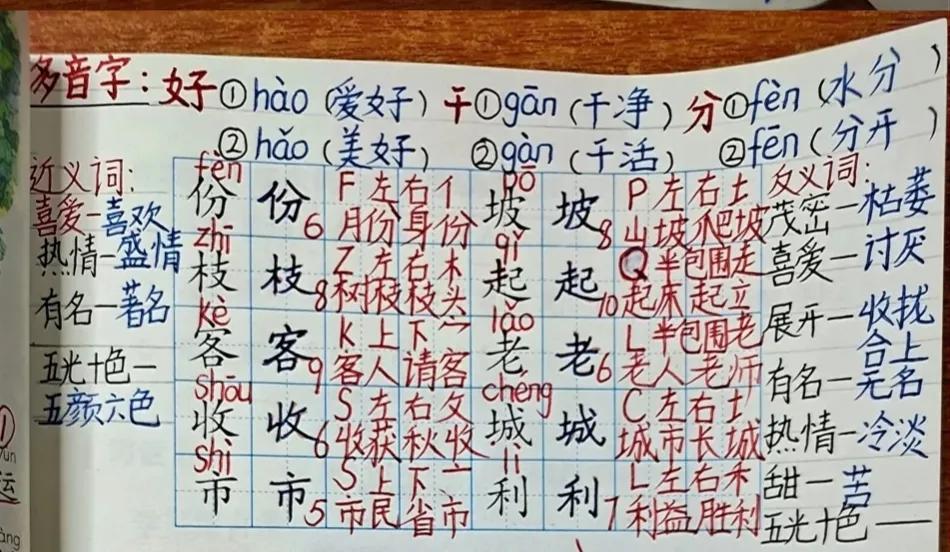 多音字：好①hào（爱好）干①gān（干净）分①fèn（水分）
②hǎo（美好）②gàn（干活）②fēn（分开）
近义词：
喜爱—喜欢
热情—盛情
有名—著名
五光十色—
五颜六色
fèn
份 份 6 F 左右 亻
月份 身份
zhī
枝 枝 8 Z 左右 木
树枝 枝头
kè
客 客 9 K 上下 宀
客人 请客
shōu
收 收 6 S 左右 攵
收获 秋收
shì
市 市 5 S 上下 亠
市民 省市
pō
坡 坡 8 P 左右 土
山坡 爬坡
qǐ
起 起 10 Q 半包围 走
起床 起立
lǎo
老 老 6 L 半包围 老
老人 老师
chéng
城 城 C 左右 土
城市 长城
lì
利 利 7 L 左右 禾
利益 胜利
反义词：
茂密—枯萎
喜爱—讨厌
展开—收拢
合上
有名—无名
热情—冷淡
甜—苦
五光十色——
①
yùn
运